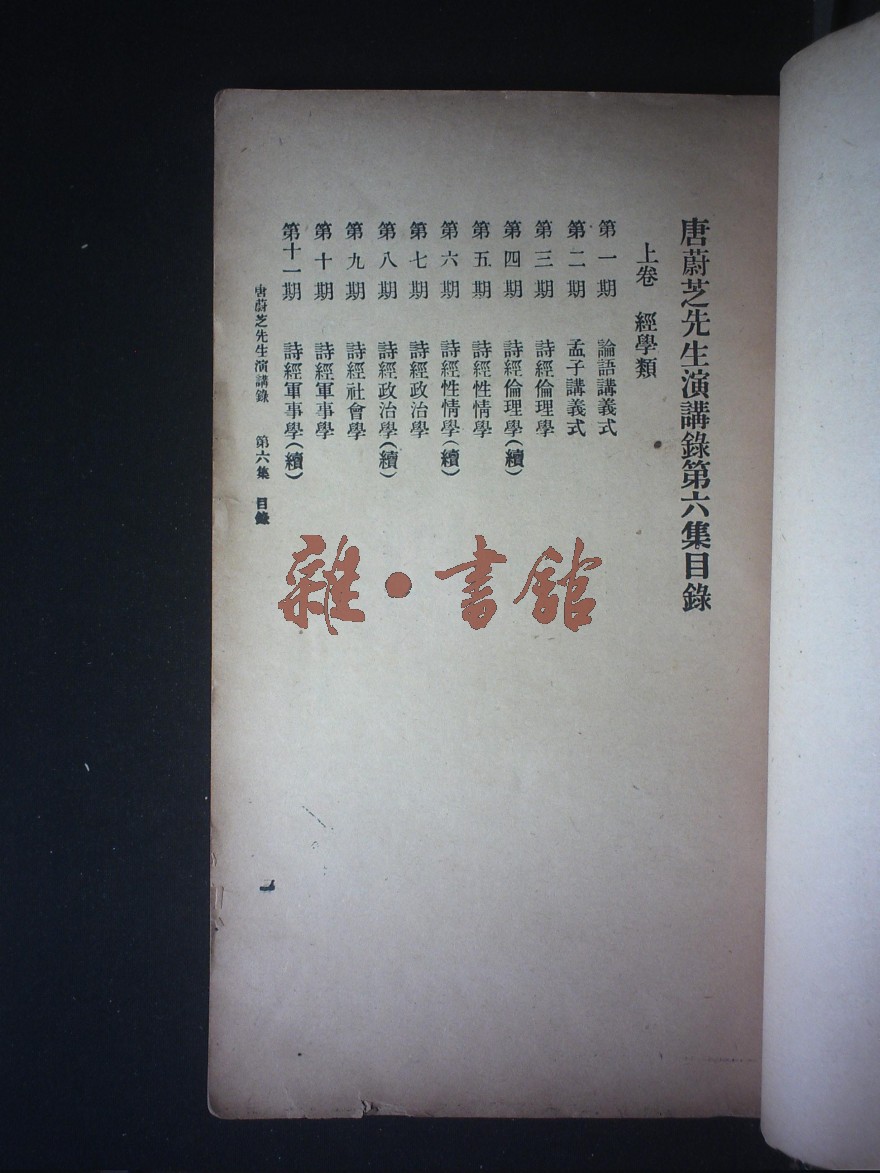 唐蔚芝先生演講錄第六集目錄
上卷　經學類
第一期　論語講義式
第二期　孟子講義式
第三期　詩經倫理學
第四期　詩經倫理學(續)
第五期　詩經性情學
第六期　詩經性情學(續)
第七期　詩經政治學
第八期　詩經政治學(續)
第九期　詩經社會學
第十期　詩經軍事學
第十一期　詩經軍事學(續)
唐蔚芝先生演講錄　第六集　目錄
一
雜·書館